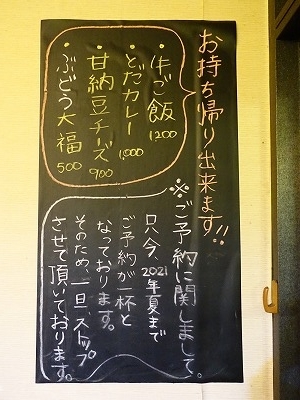 お持ち帰り出来ます!!
・牛ご飯
1200
・どだカレー
1,000
・甘納豆チーズ
900
・ぶどう大福
500
※ご予約に関しまして。
只今、2021年夏まで
ご予約が一杯と
なっております。
そのため、一旦、ストップ
させて頂いております。